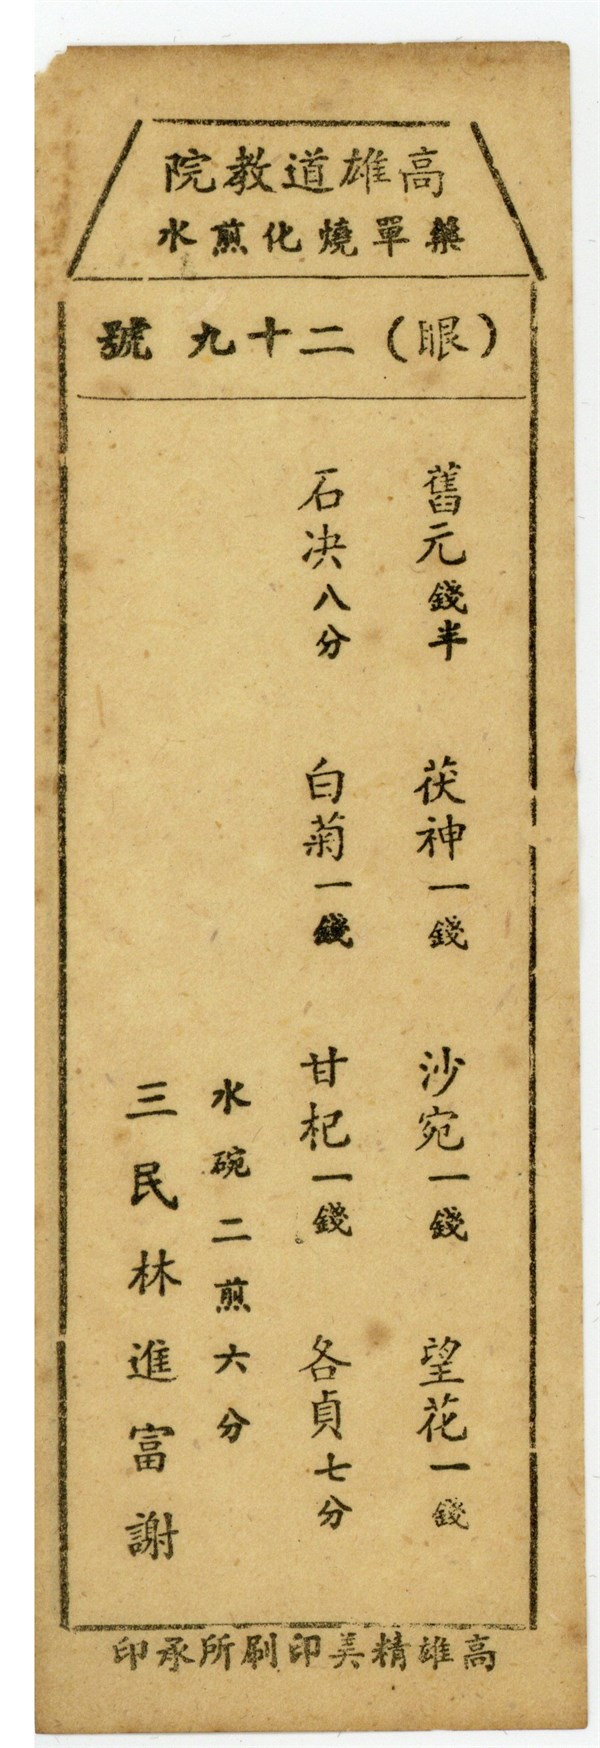 高雄道教院
藥單燒化煎水
（眼）二十九號
舊元錢半 茯神一錢 沙宛一錢 望花一錢
石決八分 白菊一錢 甘杞一錢 各貞七分
水碗二煎六分
三民林進富謝
高雄精美印刷所承印